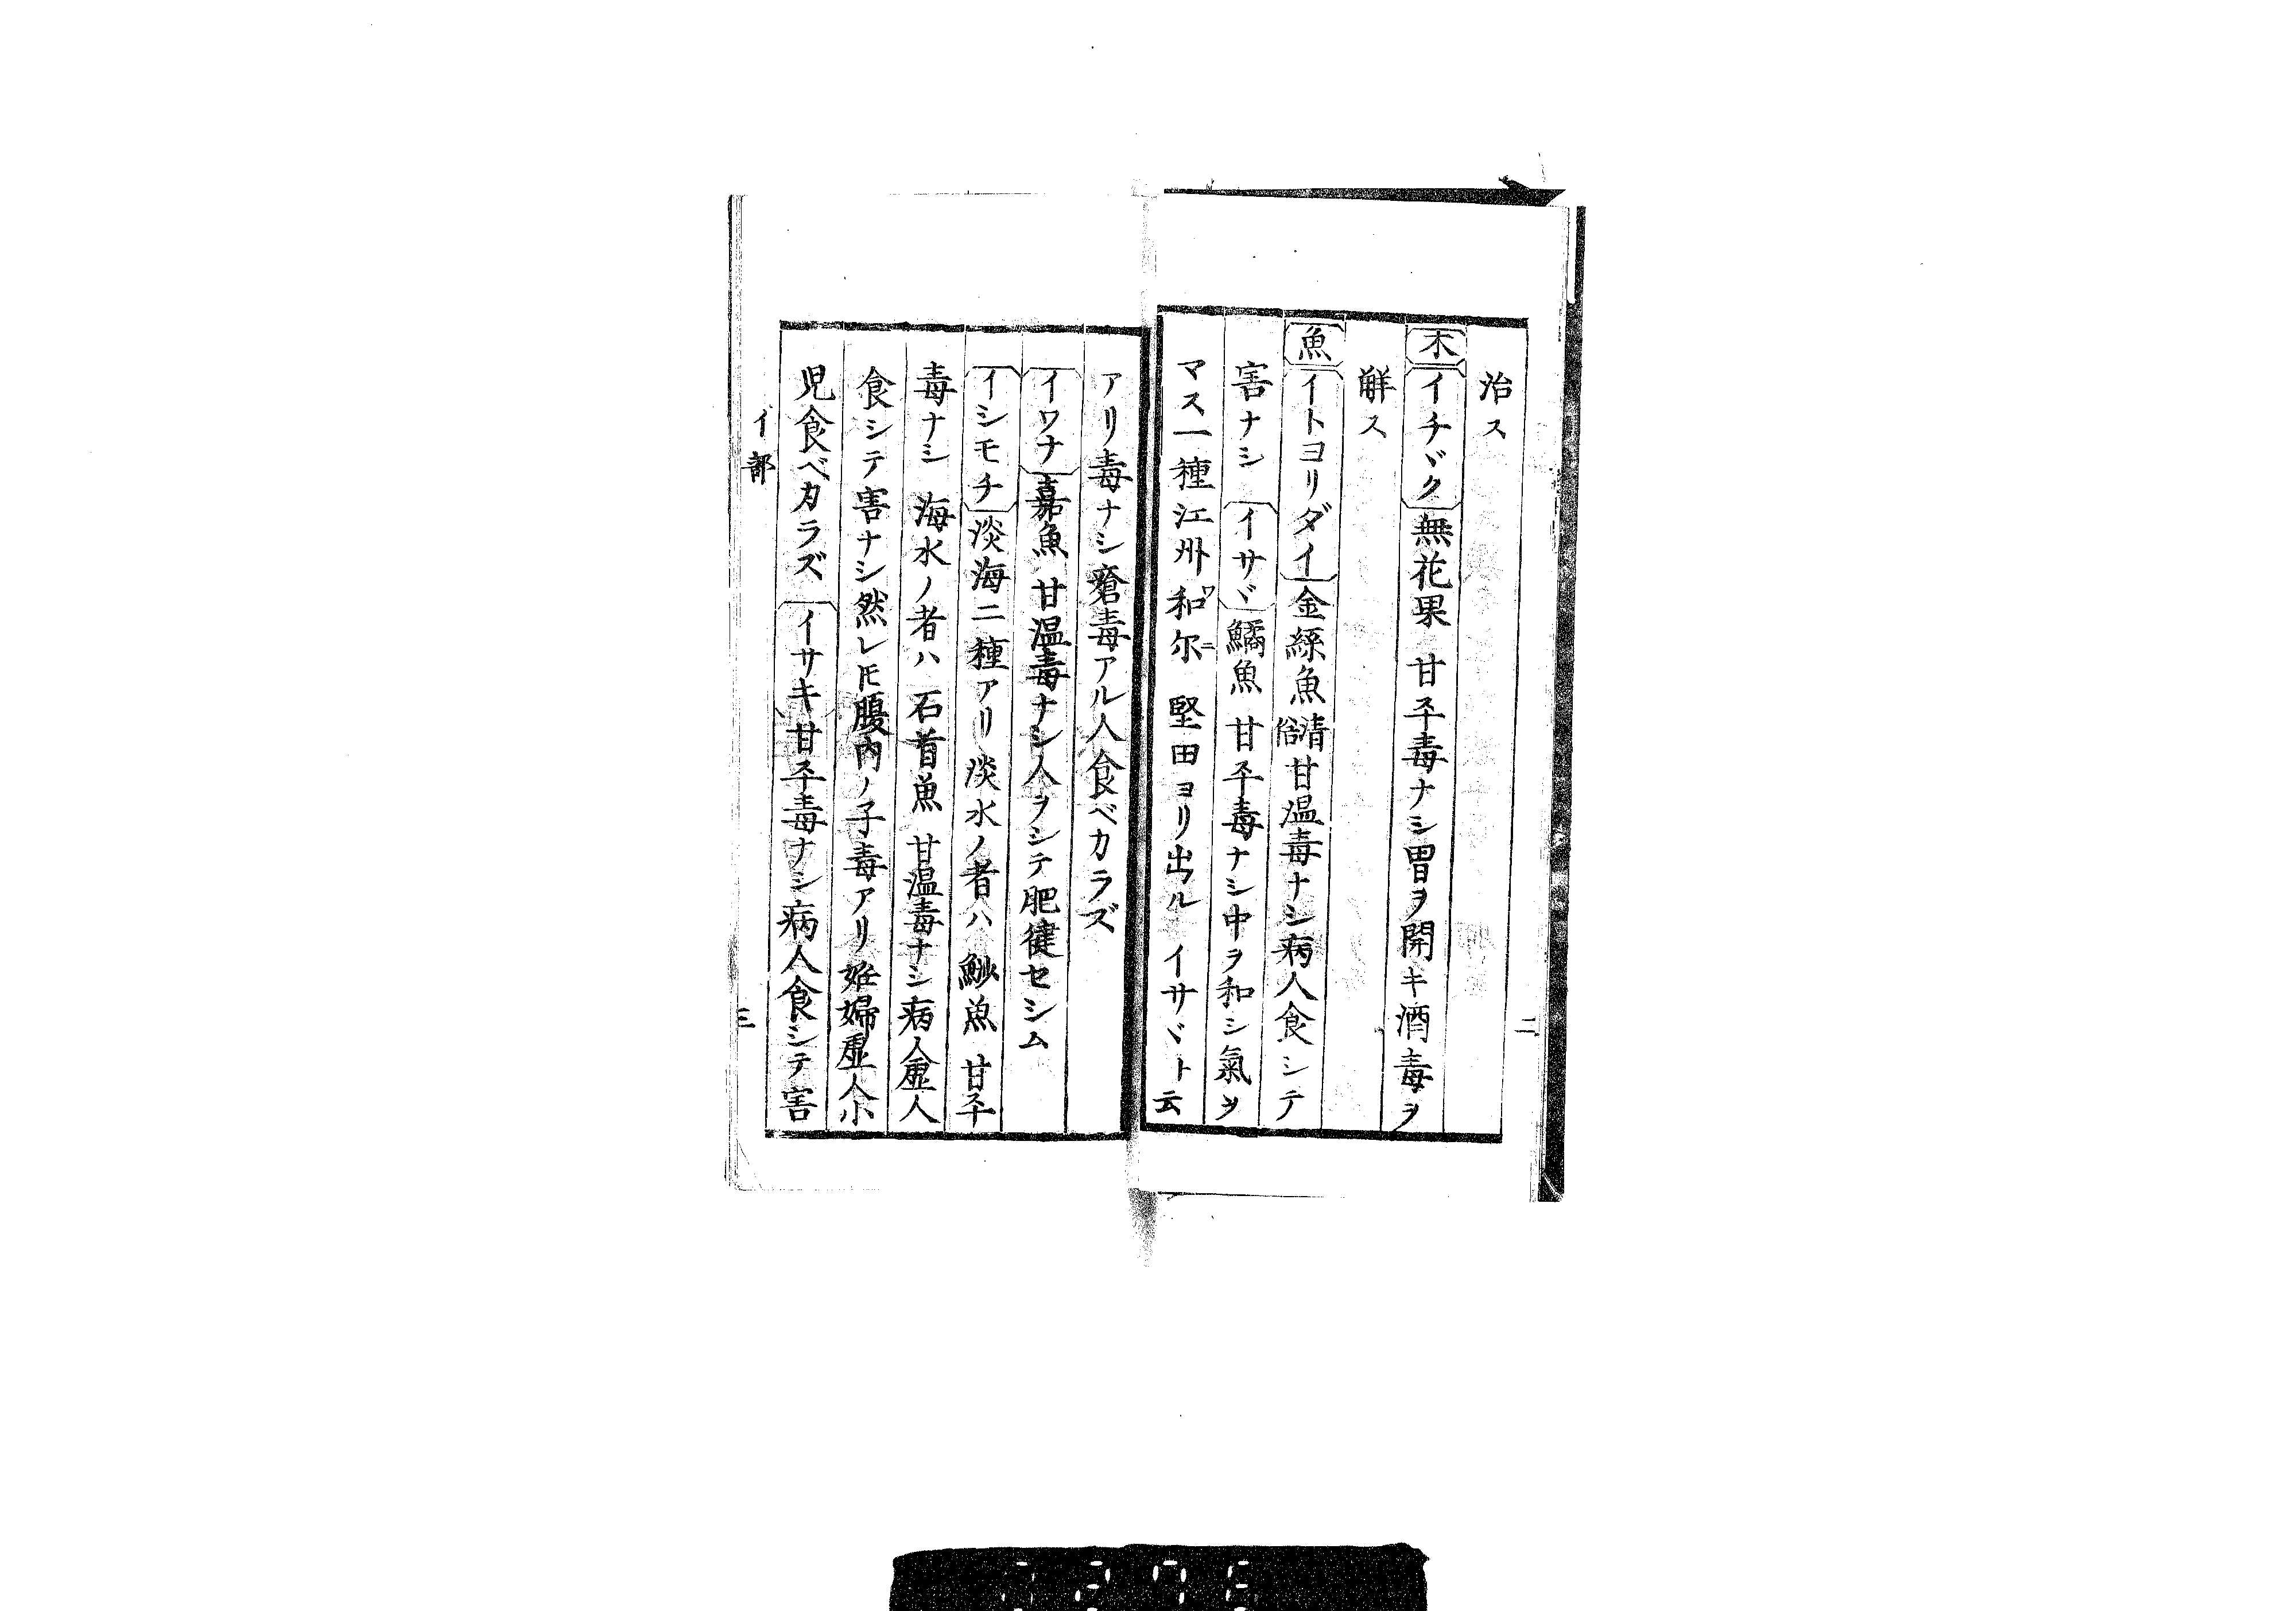 治ス
木 イチヾク 無花果 甘平毒ナシ胃ヲ開キ酒毒ヲ
解ス
魚 イトヨリダイ 金絲魚 清俗 甘温毒ナシ病人食シテ
害ナシ イサヾ 鱊魚 甘平毒ナシ中ヲ和シ氣ヲ
マス一種江州和尓 堅田ヨリ出ル イサヾト云
ワニ
二
アリ毒ナシ瘡毒アル人食ベカラズ
イワナ 嘉魚 甘温毒ナシ人ヲシテ肥健セシム
イシモチ 淡海二種アリ淡水ノ者ハ 魦魚 甘平
毒ナシ 海水ノ者ハ 石首魚 甘温毒ナシ病人虚人
食シテ害ナシ然レ𪜈腹内ノ子毒アリ妊婦虚人小
児食ベカラズ イサキ 甘平毒ナシ病人食シテ害
イ部
三